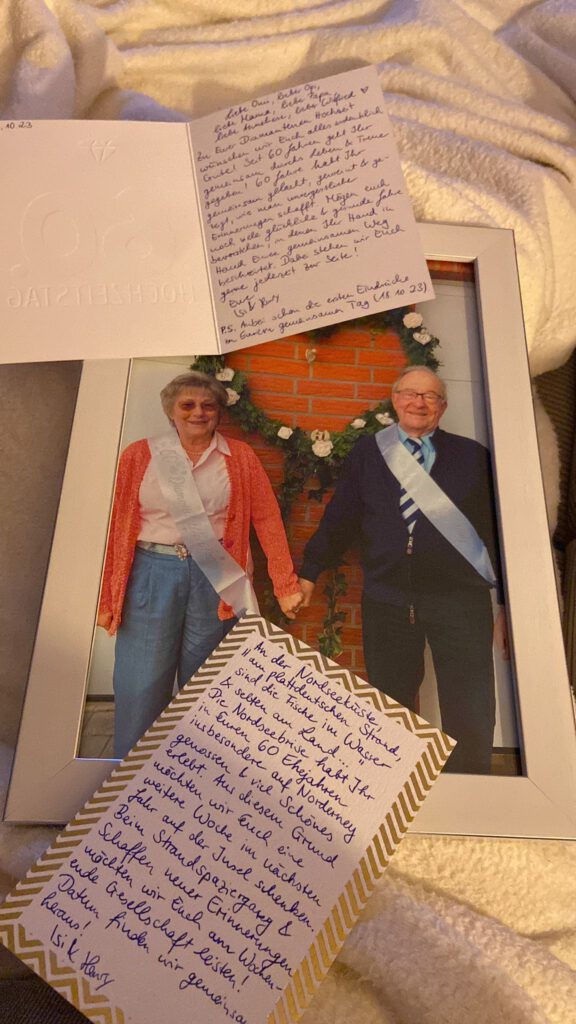 .10 23
HOCHZEITSTAG
Liebe Omi, lieber Opi,
liebe Mama, lieber Papa,
liebe Anneliese, lieber Wilfried ♥
Zu Eurer Diamantenen Hochzeit
wünschen wir Euch alles erdenklich
Gute! Seit 60 Jahren geht Ihr
gemeinsam durchs Leben & Treue
gegeben! 60 Jahre habt Ihr
gemeinsam gelacht, geweint & ge-
wie man unvergessliche
Erinnerungen schafft. Mögen euch
noch viele glückliche & gesunde Jahre
bevorstehen, in denen Ihr Hand in
Hand Euren gemeinsamen Weg
beschreitet. Dabei stehen wir Euch
gerne jederzeit zur Seite!
Eure
Isi & Henry
P.S. Anbei schon die ersten Eindrücke
an Euren gemeinsamen Tag (18.10.23)
An der Nordseeküste,
"am plattdeutschen Strand,
sind die Fische im Wasser
& selten an Land..."
Die Nordseebrise habt Ihr
in Euren 60 Ehejahren
insbesondere auf Norderney
genossen & viel Schönes
erlebt. Aus diesem Grund
möchten wir Euch eine
weitere Woche im nächsten
Jahr auf der Insel schenken.
Beim Strandspaziergang &
Schaffen neuer Erinnerungen
möchten wir Euch am Wochen-
ende Gesellschaft leisten!
Datum finden wir gemeinsam
heraus!
Isi & Henry